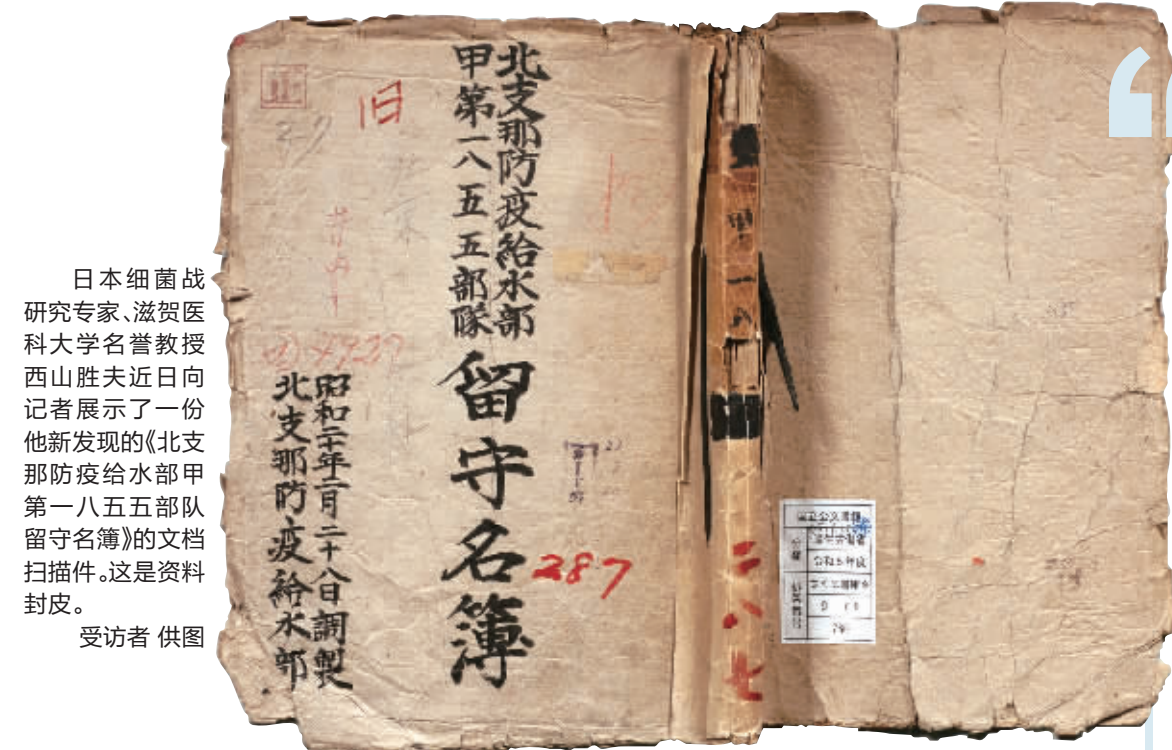 日本细菌战
研究专家、滋贺医
科大学名誉教授
西山胜夫近日向
记者展示了一份
他新发现的《北支
那防疫给水部甲
第一八五五部队
留守名簿》的文档
扫描件。这是资料
封皮。
受访者 供图
旧
北支那防疫給水部
甲第一八五五部隊
留守名簿
287
昭和二十年二月二十八日調製
北支那防疫給水部
二八七